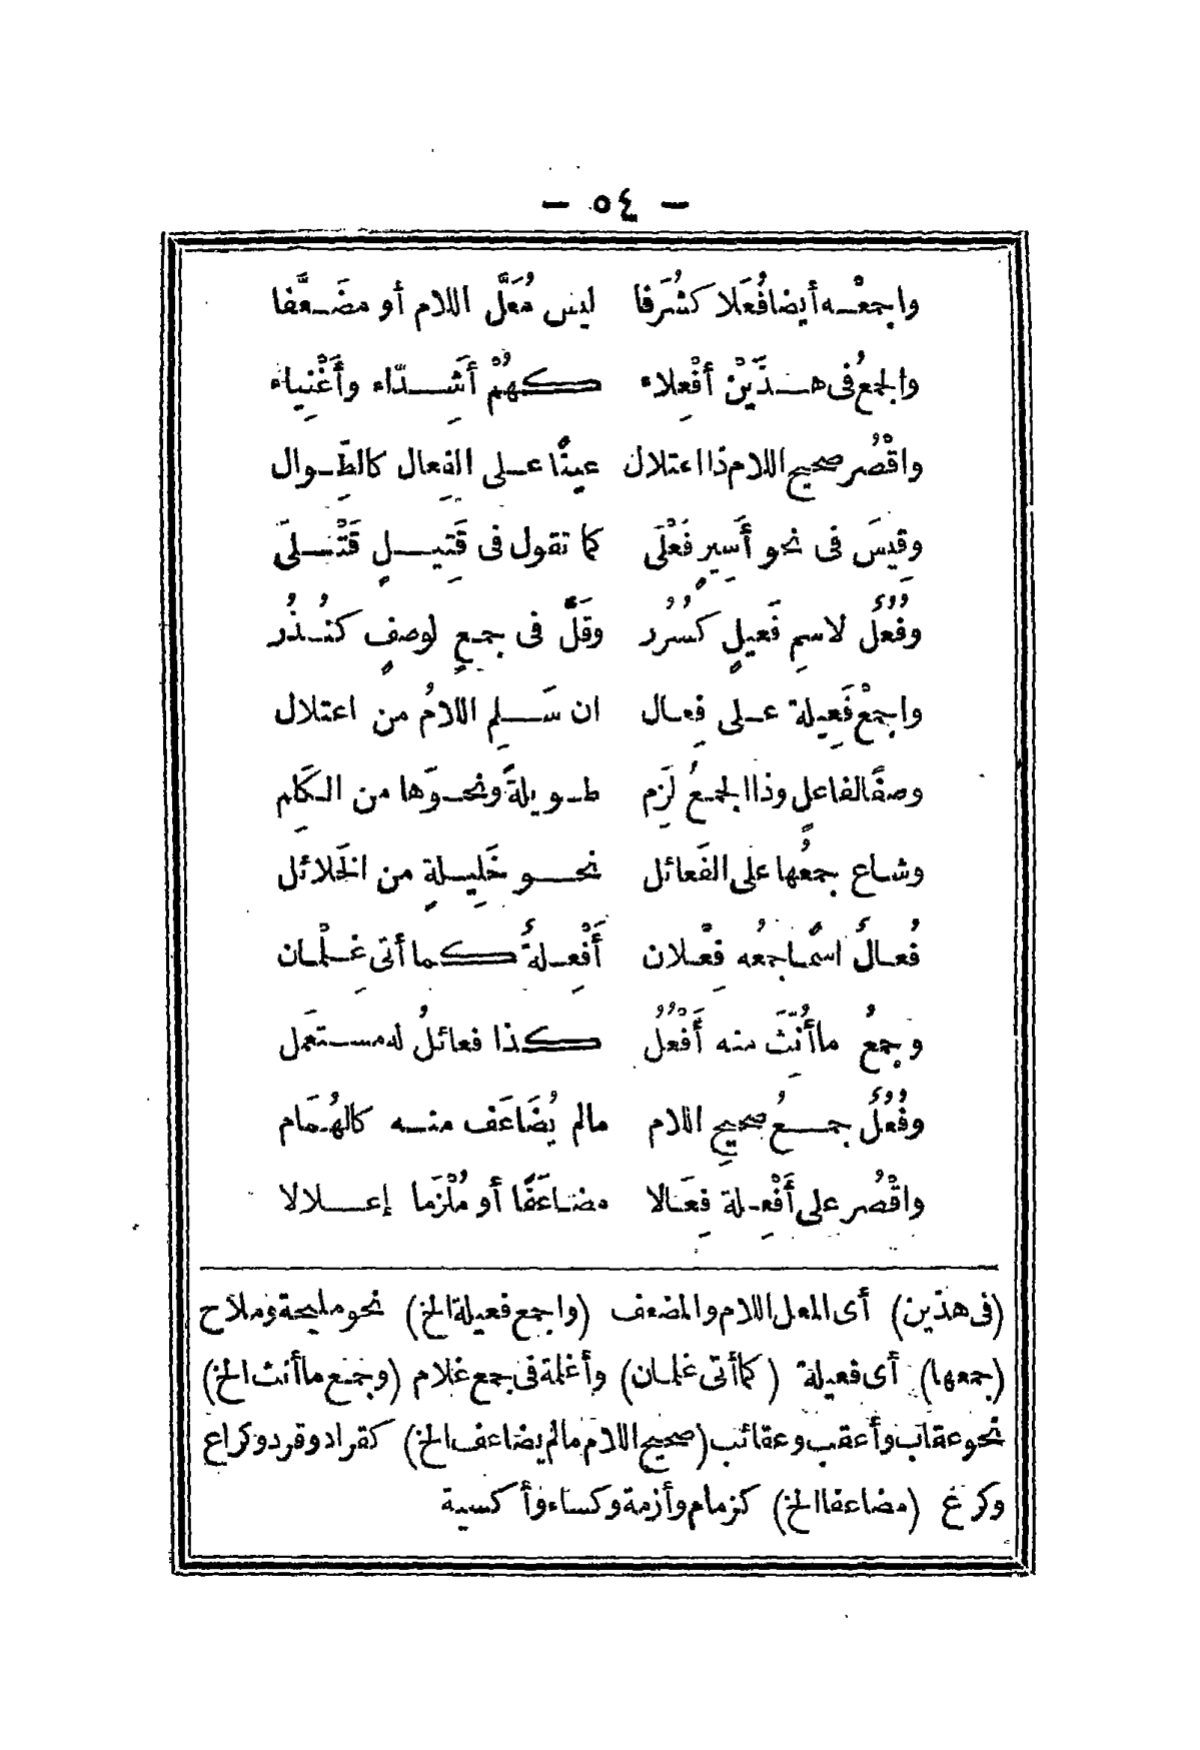 — ٥٤ —
واجمعْه أيضا فُعَلا كشُرَفا ليس مُعَلَّ اللام أو مضَعَّفا
والجمعُ فى هذَيْنِ أفْعِلاء كهُمْ أَشِدّاء وأَغْنِياء
واقْصُر صحيح اللام ذا اعتلال عينًا على الفِعال كالطِّوال
وقِيسَ فى نحو أَسِيرٍ فَعْلَى كما تقول فى قَتِيلٍ قَتْلَى
وفُعُلٌ لاسمِ فَعيلٍ كسُرُر وقَلَّ فى جمعٍ لوصفٍ كنُذُر
واجمعْ فَعِيلة على فِعال ان سَلِم اللامُ من اعتلال
وصفًا لفاعلٍ وذا الجمعُ لَزِم طويلةً ونحوَها من الكَلِم
وشاع جمعُها على الفَعائل نحو خَلِيلةٍ من الخَلائل
فُعالٌ اسمًا جمعُه فِعْلان أَفْعِلةٌ كما أتى غِلْمان
وجمعُ ما أُنِّثَ منه أَفْعُلُ كذا فعائلُ له مستعمَل
وفُعُلٌ جمعُ صحيحِ اللام مالم يُضَاعَف منه كالهُمَام
واقْصُر على أَفْعِلة فِعَالا مضاعَفًا أو مُلْزَما إعلالا
(فى هذين) أى المعل اللام والمضعف (واجمع فعيلة الخ) نحو مليحة وملاح
(جمعها) أى فعيلة (كما أتى غلمان) وأغلمة فى جمع غلام (وجمع ما أنث الخ)
نحو عقاب وأعقب وعقائب (صحيح اللام مالم يضاعف الخ) كقراد وقرد وكراع
وكرع (مضاعفا الخ) كزمام وأزمة وكساء وأكسية